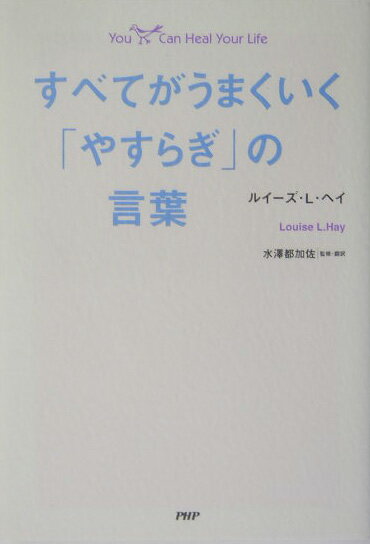 You Can Heal Your Life
すべてがうまくいく
「やすらぎ」の
言葉
ルイーズ・L・ヘイ
Louise L.Hay
水澤都加佐 監修・翻訳
PHP